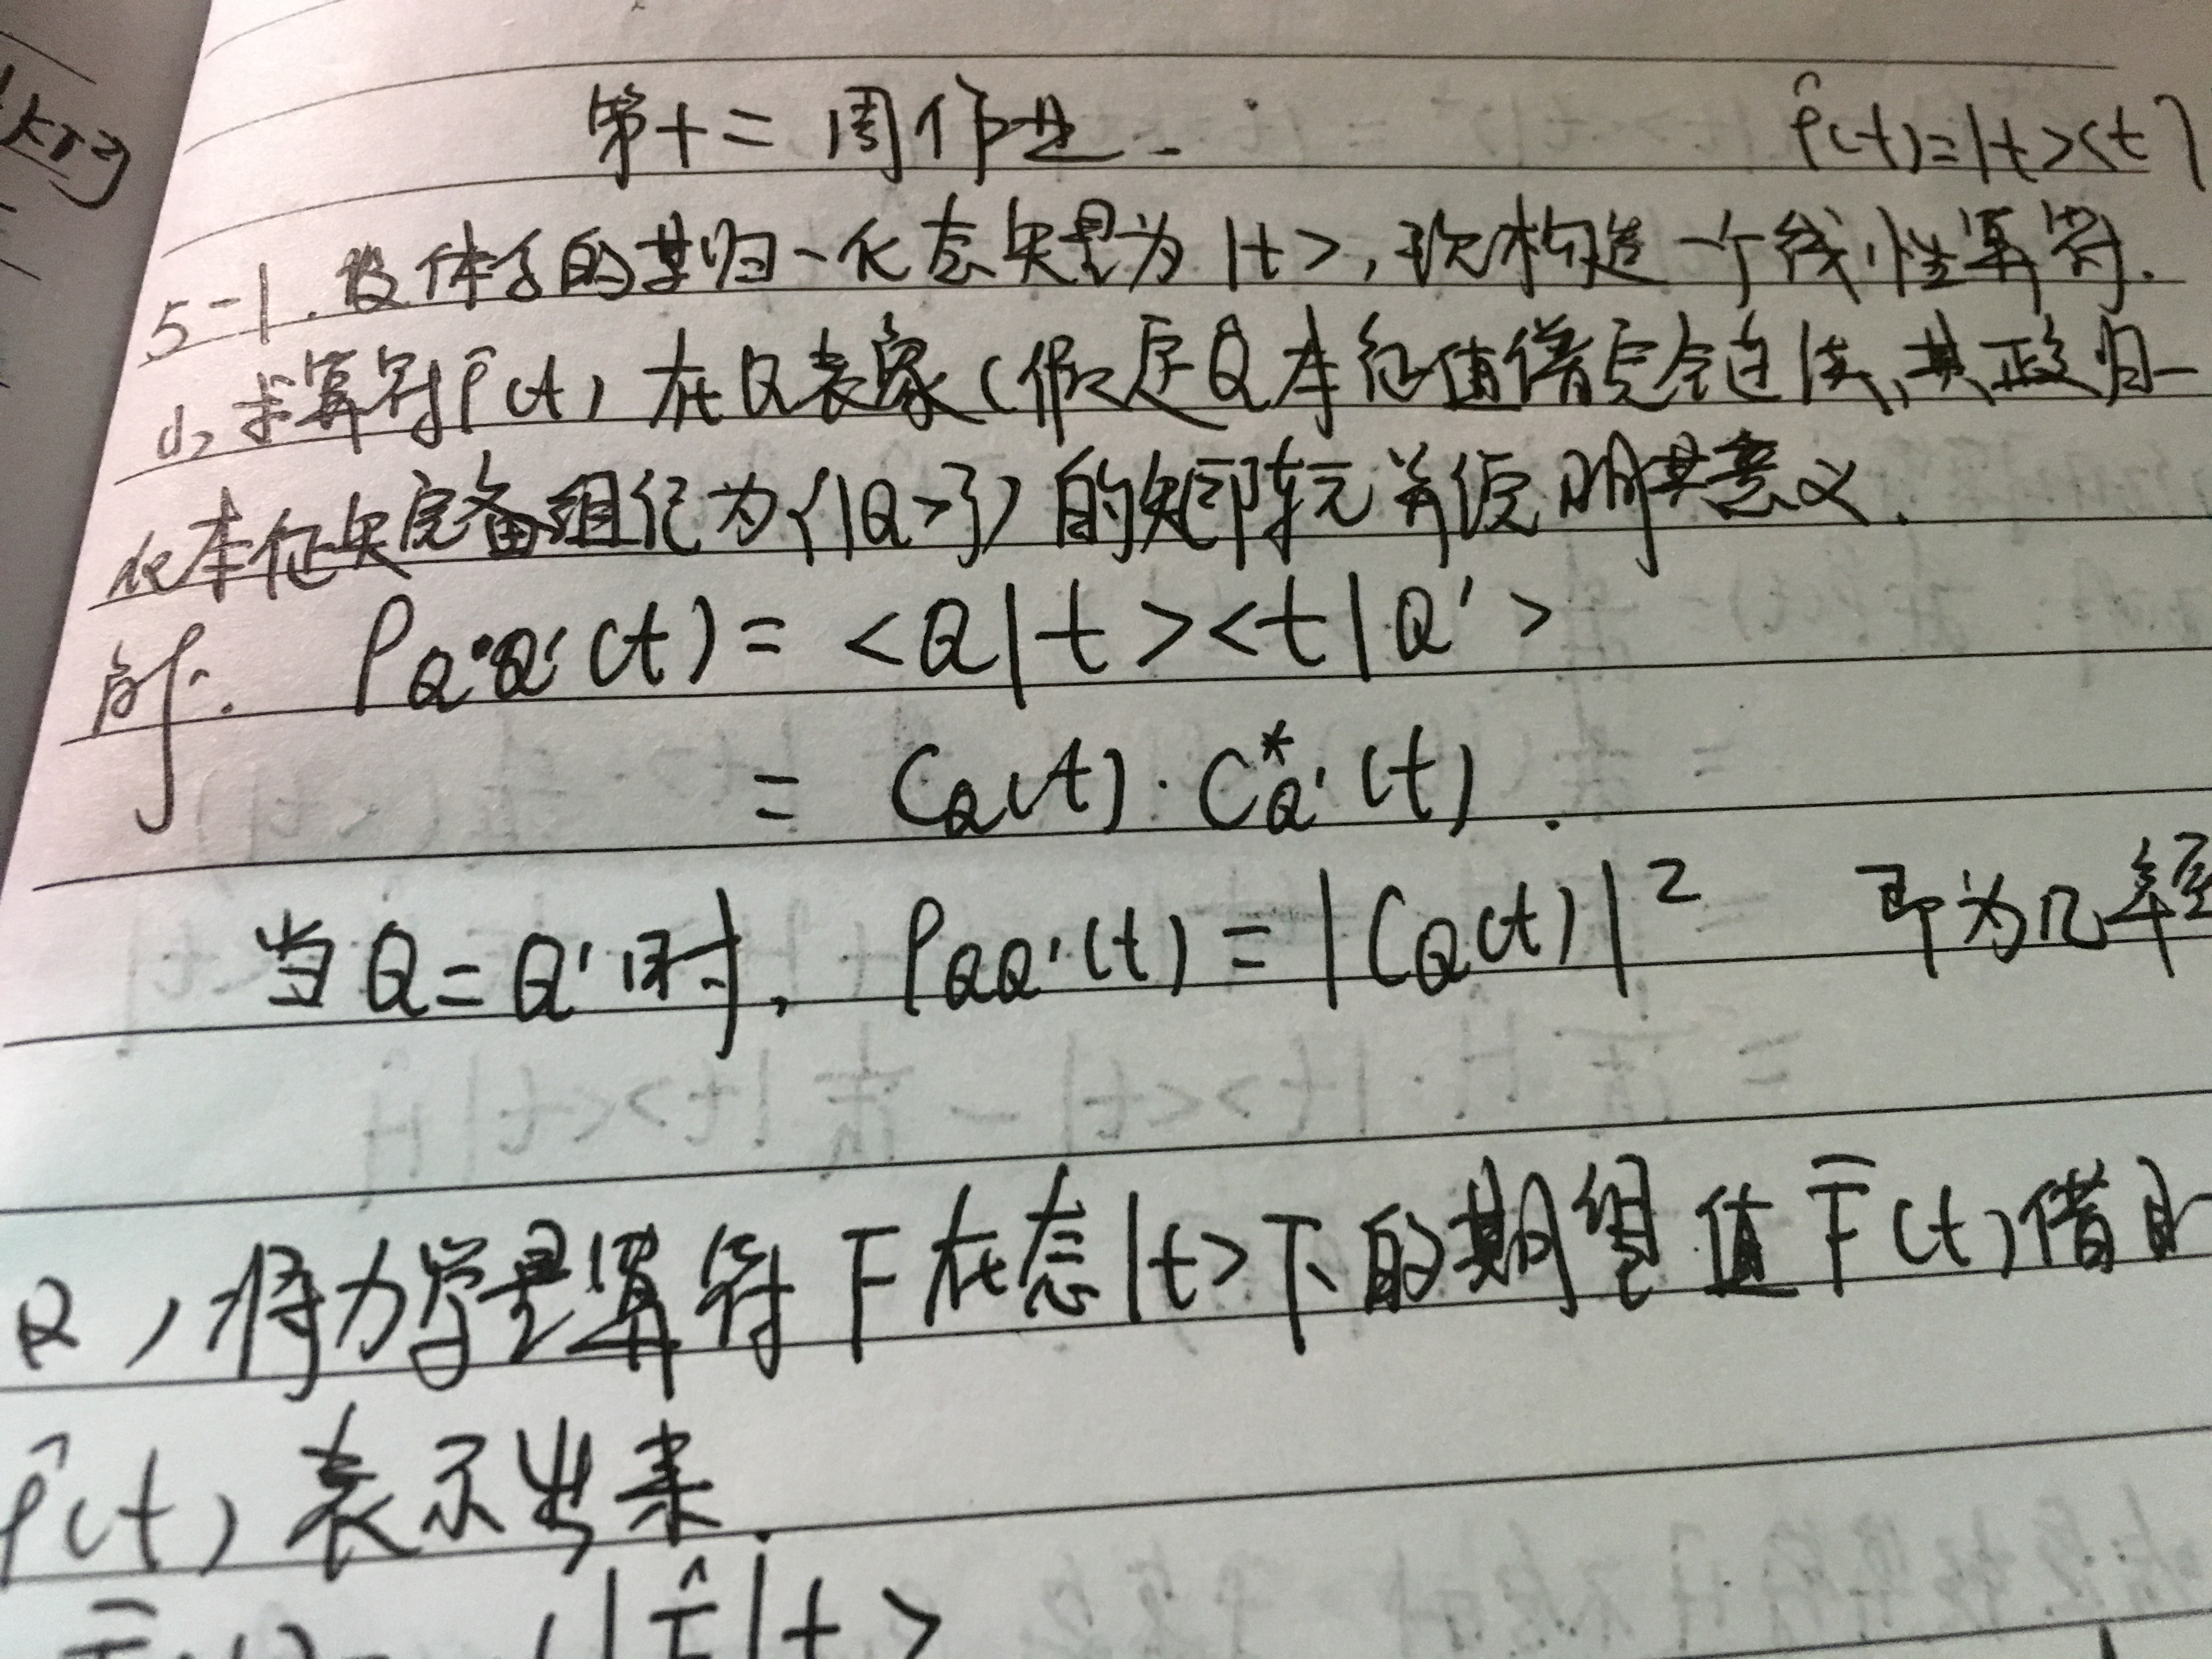 第十二周作业.
ρ̂(t)=|t><t|
5-1.设体系的某归一化态矢量为|t>,现构造一个线性算符.
求算符ρ̂(t)在Q表象(假定Q本征值谱完全连续,其正交归一
化本征矢完备组记为{|Q>})的矩阵元并说明其意义.
解: ρQQ'(t)=<Q|t><t|Q'>
= CQ(t)·C*Q'(t).
当Q=Q'时, ρQQ'(t)=|CQ(t)|² 即为几率
将力学量算符F在态|t>下的期望值F̄(t)借助
ρ̂(t)表示出来.
|F̂|t>